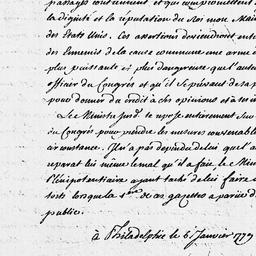 passages contiennent et qui compromettent
la dignité et la réputation du Roi mon Mai
des Etats Unis. Ces assertions deviendront entre
des Ennemis de la cause commune une arme d
plus puissante et plus dangereuse que l'auteur
officier du Congrès et qu'il se prévaut de sa p
pour donner du crédit à ses opinions et à ses in
Le Ministre sous. se repose entierement sur
du Congrès pour prendre les mesures convenables
circonstance. Il n'a pas dépendu de lui que l'au
reparat lui même le mal qu'il a fait, le Mini
Plénipotentiaire ayant taché de lui faire
torts lorsque la de ces gazettes a parû e
public.
à Philadelphie le 5 Janvier 1779